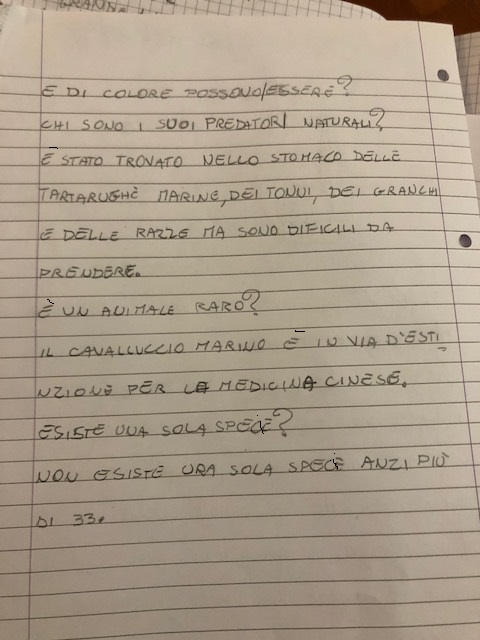 E DI COLORE POSSONO/ESSERE?
CHI SONO I SUOI PREDATORI NATURALI?
È STATO TROVATO NELLO STOMACO DELLE
TARTARUGHÈ MARINE, DEI TONNI, DEI GRANCHI
E DELLE RAZZE MA SONO DIFICILI DA
PRENDERE.
È UN ANIMALE RARO?
IL CAVALLUCCIO MARINO È IN VIA D'ESTI
NZIONE PER LA MEDICINA CINESE.
ESISTE UNA SOLA SPECIE?
NON ESISTE UNA SOLA SPECIE ANZI PIÙ
DI 33.